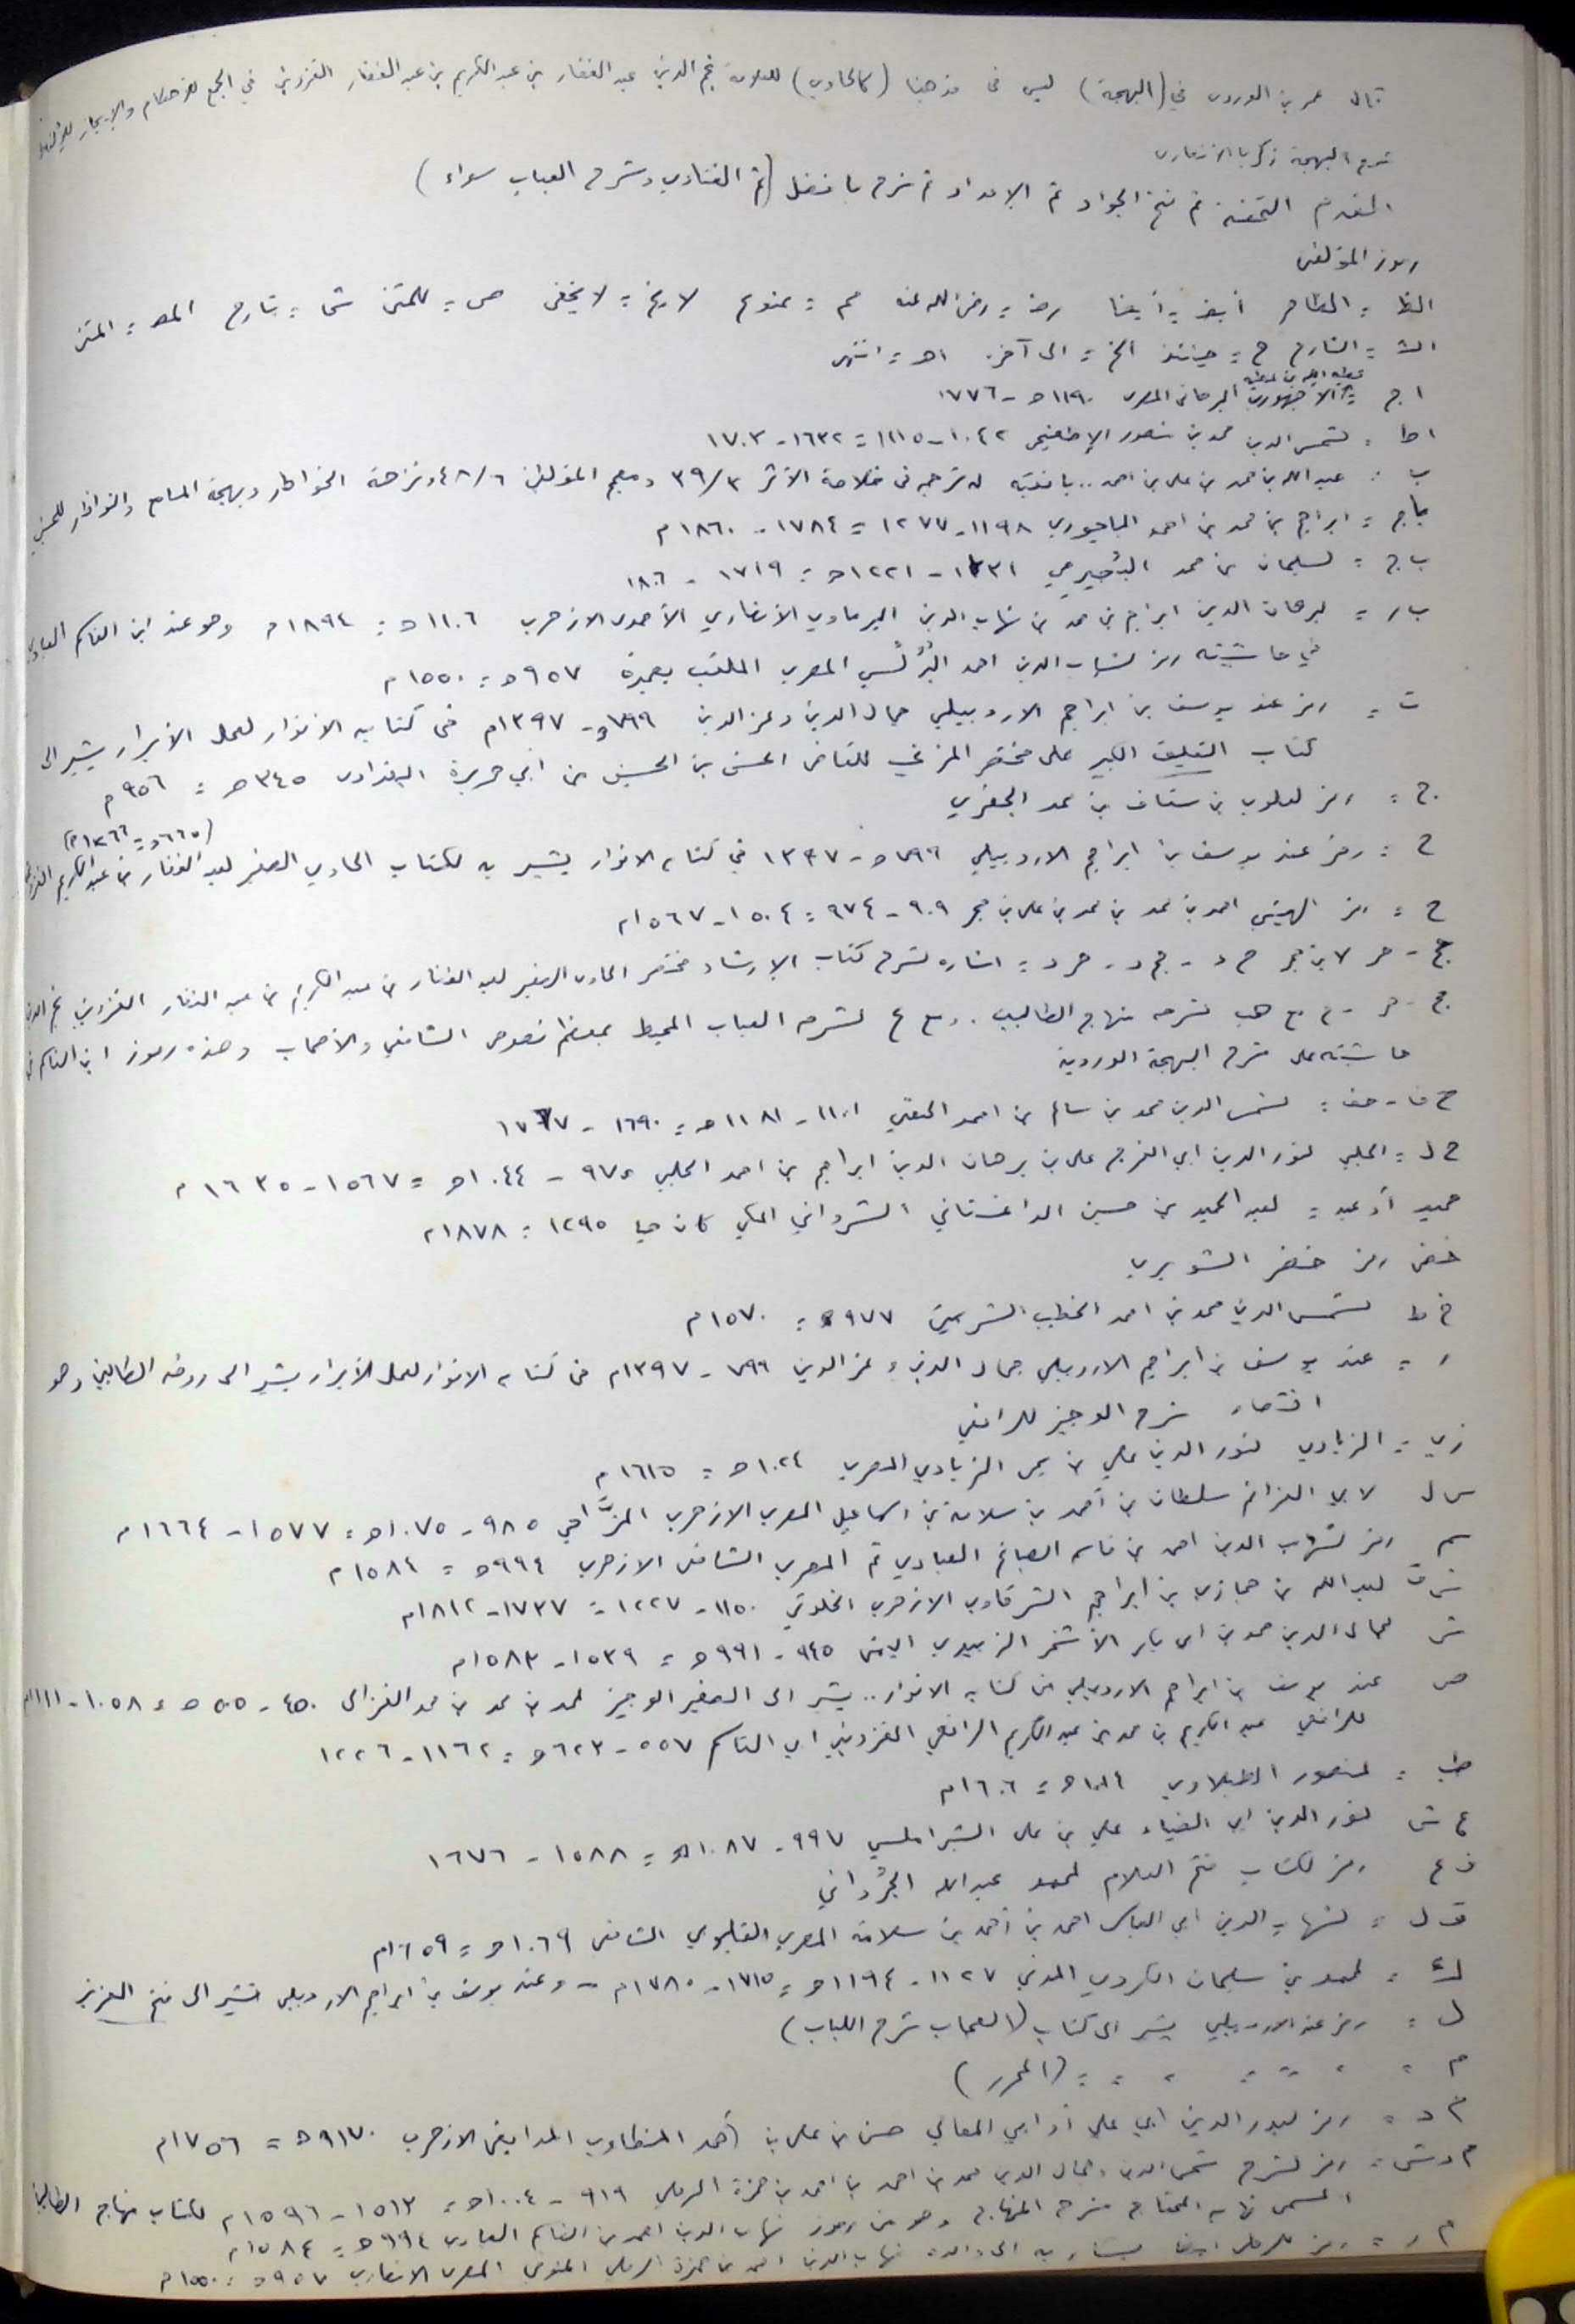 قال عمر بن الوردي في (البهجة) ليس في مذهبنا (كالحاوي) للعلامة نجم الدين عبد الغفار بن عبد الكريم بن عبد الغفار القزويني في الجمع للأحكام والإيجاز
شرح البهجة زكريا الأنصاري
المقدم التحفة ثم فتح الجواد ثم الإمداد ثم شرح بافضل (ثم الفتاوي وشرح العباب سواء)
رموز المؤلفين
الظ = الظاهر أيض = أيضا رضـ = رضي الله عنه مم = ممنوع لا يخ = لا يخفى ص = للمتن ش = شارح المص = المتن
الش = الشارح ح = حينئذ الخ = الى آخره اهـ = انتهى
عطية الله بن عطية
اج = الأجهوري البرهاني المصري ١١٩٠هـ - ١٧٧٦
اط = لشمس الدين محمد بن منصور الإطفيحي ١٠٤٢-١١١٥ = ١٦٣٢-١٧٠٣
ب = عبد الله بن محمد بن علي بن احمد .. باقشير له ترجمة في خلاصة الأثر ٣٩/٣ ومعجم المؤلفين ٤٨/٦ ونزهة الخواطر وبهجة المسامع والنواظر
باج = ابراهيم بن محمد بن احمد الباجوري ١١٩٨-١٢٧٧ = ١٧٨٤-١٨٦٠م
ب ج = لسليمان بن محمد البُجَيرمي ١١٣١-١٢٢١هـ = ١٧١٩-١٨٠٦
ب ر = لبرهان الدين ابراهيم بن محمد بن شهاب الدين البرماوي الأنصاري الأحمدي الازهري ١١٠٦هـ = ١٨٩٤م وهو عند ابن القاسم العبادي
في حاشيته رمز لشهاب الدين احمد البُرُلُّسي المصري الملقب بعميرة ٩٥٧هـ = ١٥٥٠م
ت = رمز عند يوسف بن ابراهيم الاردبيلي جمال الدين وعز الدين ٧٩٩هـ - ١٣٩٧م في كتابه الانوار لعمل الأبرار يشير الى
كتاب التعليق الكبير على مختصر المزني للقاضي الحسن بن الحسين بن ابي هريرة البغدادي ٣٤٥هـ = ٩٥٦م
ج = رمز لعلوي بن سقاف بن محمد الجفري
(٦٦٥هـ = ١٢٦٦م)
ح = رمز عند يوسف بن ابراهيم الاردبيلي ٧٩٩هـ - ١٣٩٧ في كتابه الانوار يشير به لكتاب الحاوي الصغير لعبد الغفار بن عبد الكريم
ح = رمز الهيتمي احمد بن محمد بن محمد بن علي بن حجر ٩٠٩-٩٧٤ = ١٥٠٤-١٥٦٧م
حج - حر لابن حجر ح د - حج د - حر د = اشارة لشرح كتاب الإرشاد مختصر الحاوي الصغير لعبد الغفار بن عبد الكريم بن عبد الغفار القزويني نجم الدين
لشرحه منهاج الطالبين. لشرحه العباب المحيط بمعظم نصوص الشافعي والأصحاب وهذه رموز ابن القاسم في
حاشيته على شرح البهجة الوردية
ح ف - حف = لشمس الدين محمد بن سالم بن احمد الحفني ١١٠١-١١٨١هـ = ١٦٩٠-١٧٦٧
ح ل = الحلبي لنور الدين ابي الفرج علي بن برهان الدين ابراهيم بن احمد الحلبي ٩٧٥-١٠٤٤هـ = ١٥٦٧-١٦٣٥م
حميد أو عبد = لعبد الحميد بن حسين الداغستاني الشرواني المكي كان حيا ١٢٩٥ = ١٨٧٨م
خض رمز خضر الشوبري
خ ط لشمس الدين محمد بن احمد الخطيب الشربيني ٩٧٧هـ = ١٥٧٠م
ر = عند يوسف بن ابراهيم الاردبيلي جمال الدين وعز الدين ٧٩٩-١٣٩٧م في كتابه الانوار لعمل الأبرار يشير الى روضة الطالبين وهو
اختصار شرح الوجيز للرافعي
زي = الزيادي لنور الدين علي بن يحيى الزيادي المصري ١٠٢٤هـ = ١٦١٥م
س ل لابي العزائم سلطان بن أحمد بن سلامة بن اسماعيل المصري الازهري المزَّاحي ٩٨٥-١٠٧٥هـ = ١٥٧٧-١٦٦٤م
سم رمز لشهاب الدين احمد بن قاسم الصباغ العبادي ثم المصري الشافعي الازهري ٩٩٤هـ = ١٥٨٤م
شرق لعبد الله بن حجازي بن ابراهيم الشرقاوي الازهري الخلوتي ١١٥٠-١٢٢٧ = ١٧٣٧-١٨١٢م
ش لجمال الدين محمد بن ابي بكر الأشخر الزبيدي اليمني ٩٤٥-٩٩١هـ = ١٥٣٩-١٥٨٣م
ص عند يوسف بن ابراهيم الاردبيلي في كتابه الانوار .. يشير الى الصغير الوجيز لمحمد بن محمد بن محمد الغزالي ٤٥٠-٥٠٥هـ = ١٠٥٨-١١١١م
للرافعي عبد الكريم بن محمد بن عبد الكريم الرافعي القزويني ابي القاسم ٥٥٧-٦٢٣هـ = ١١٦٢-١٢٢٦
طب = لمنصور الطبلاوي ١٠١٤هـ = ١٦٠٦م
ع ش لنور الدين ابي الضياء علي بن علي الشبراملسي ٩٩٧-١٠٨٧هـ = ١٥٨٨-١٦٧٦
ف ع رمز لكتاب فتح العلام لمحمد عبدالله الجُرداني
ق ل = لشهاب الدين ابي العباس احمد بن أحمد بن سلامة المصري القليوبي الشافعي ١٠٦٩هـ = ١٦٥٩م
ك = لمحمد بن سليمان الكردي المدني ١١٢٧-١١٩٤هـ = ١٧١٥-١٧٨٠م - وعند يوسف بن ابراهيم الاردبيلي تشير الى فتح العزيز
ل = رمز عند الاردبيلي يشير الى كتاب (العجاب شرح اللباب)
م = = = = = = (المحرر)
م د = رمز لبدر الدين ابي علي أو ابي المعالي حسن بن علي بن أحمد المنطاوي المدابغي الازهري ١١٧٠هـ = ١٧٥٦م
م ر ش = رمز لشرح شمس الدين وجمال الدين محمد بن احمد بن احمد بن حمزة الرملي ٩١٩-١٠٠٤هـ = ١٥١٣-١٥٩٦م لكتاب منهاج الطالبين
المسمى نهاية المحتاج شرح المنهاج وهو من رموز شهاب الدين احمد بن القاسم العبادي ٩٩٤هـ = ١٥٨٤م
م ر = رمز للرملي ايضا يشار به الى والده شهاب الدين احمد بن حمزة الرملي المنوفي المصري الانصاري ٩٥٧هـ = ١٥٥٠م